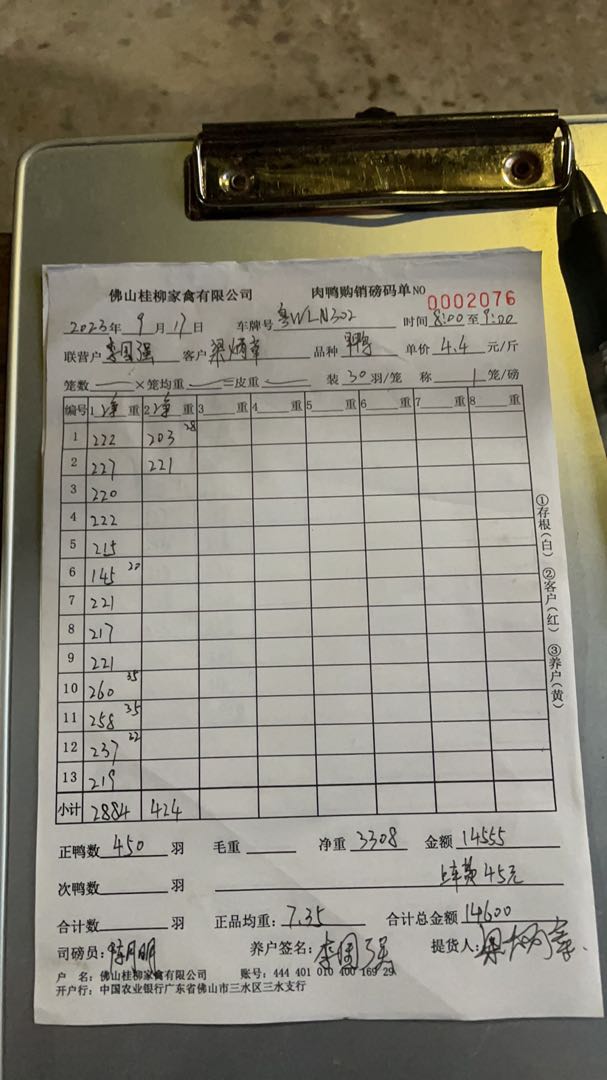 佛山桂柳家禽有限公司 肉鸭购销磅码单NO 0002076
2023年 9月 17日 车牌号 粤WLN302 时间 8:00 至 9:00
联营户 李国强 客户 梁炳章 品种 鸭 单价 4.4 元/斤
笼数 ×笼均重 =皮重 装 30 羽/笼 称 1 笼/磅
编号 1 净 重 2 净 重 3 重 4 重 5 重 6 重 7 重 8 重
1 222 203 28
2 227 221
3 220
4 222
5 215
6 145 20
7 221
8 217
9 221
10 260 35
11 258 35
12 237 22
13 219
小计 2884 424
①存根(白) ②客户(红) ③养户(黄)
正鸭数 450 羽 毛重 净重 3308 金额 14555
次鸭数 羽 上车费45元
合计数 羽 正品均重: 7.35 合计总金额 14600
司磅员: 养户签名: 李国强 提货人: 梁炳章
户 名: 佛山桂柳家禽有限公司 账号: 444 401 010 400 169 29
开户行: 中国农业银行广东省佛山市三水区三水支行